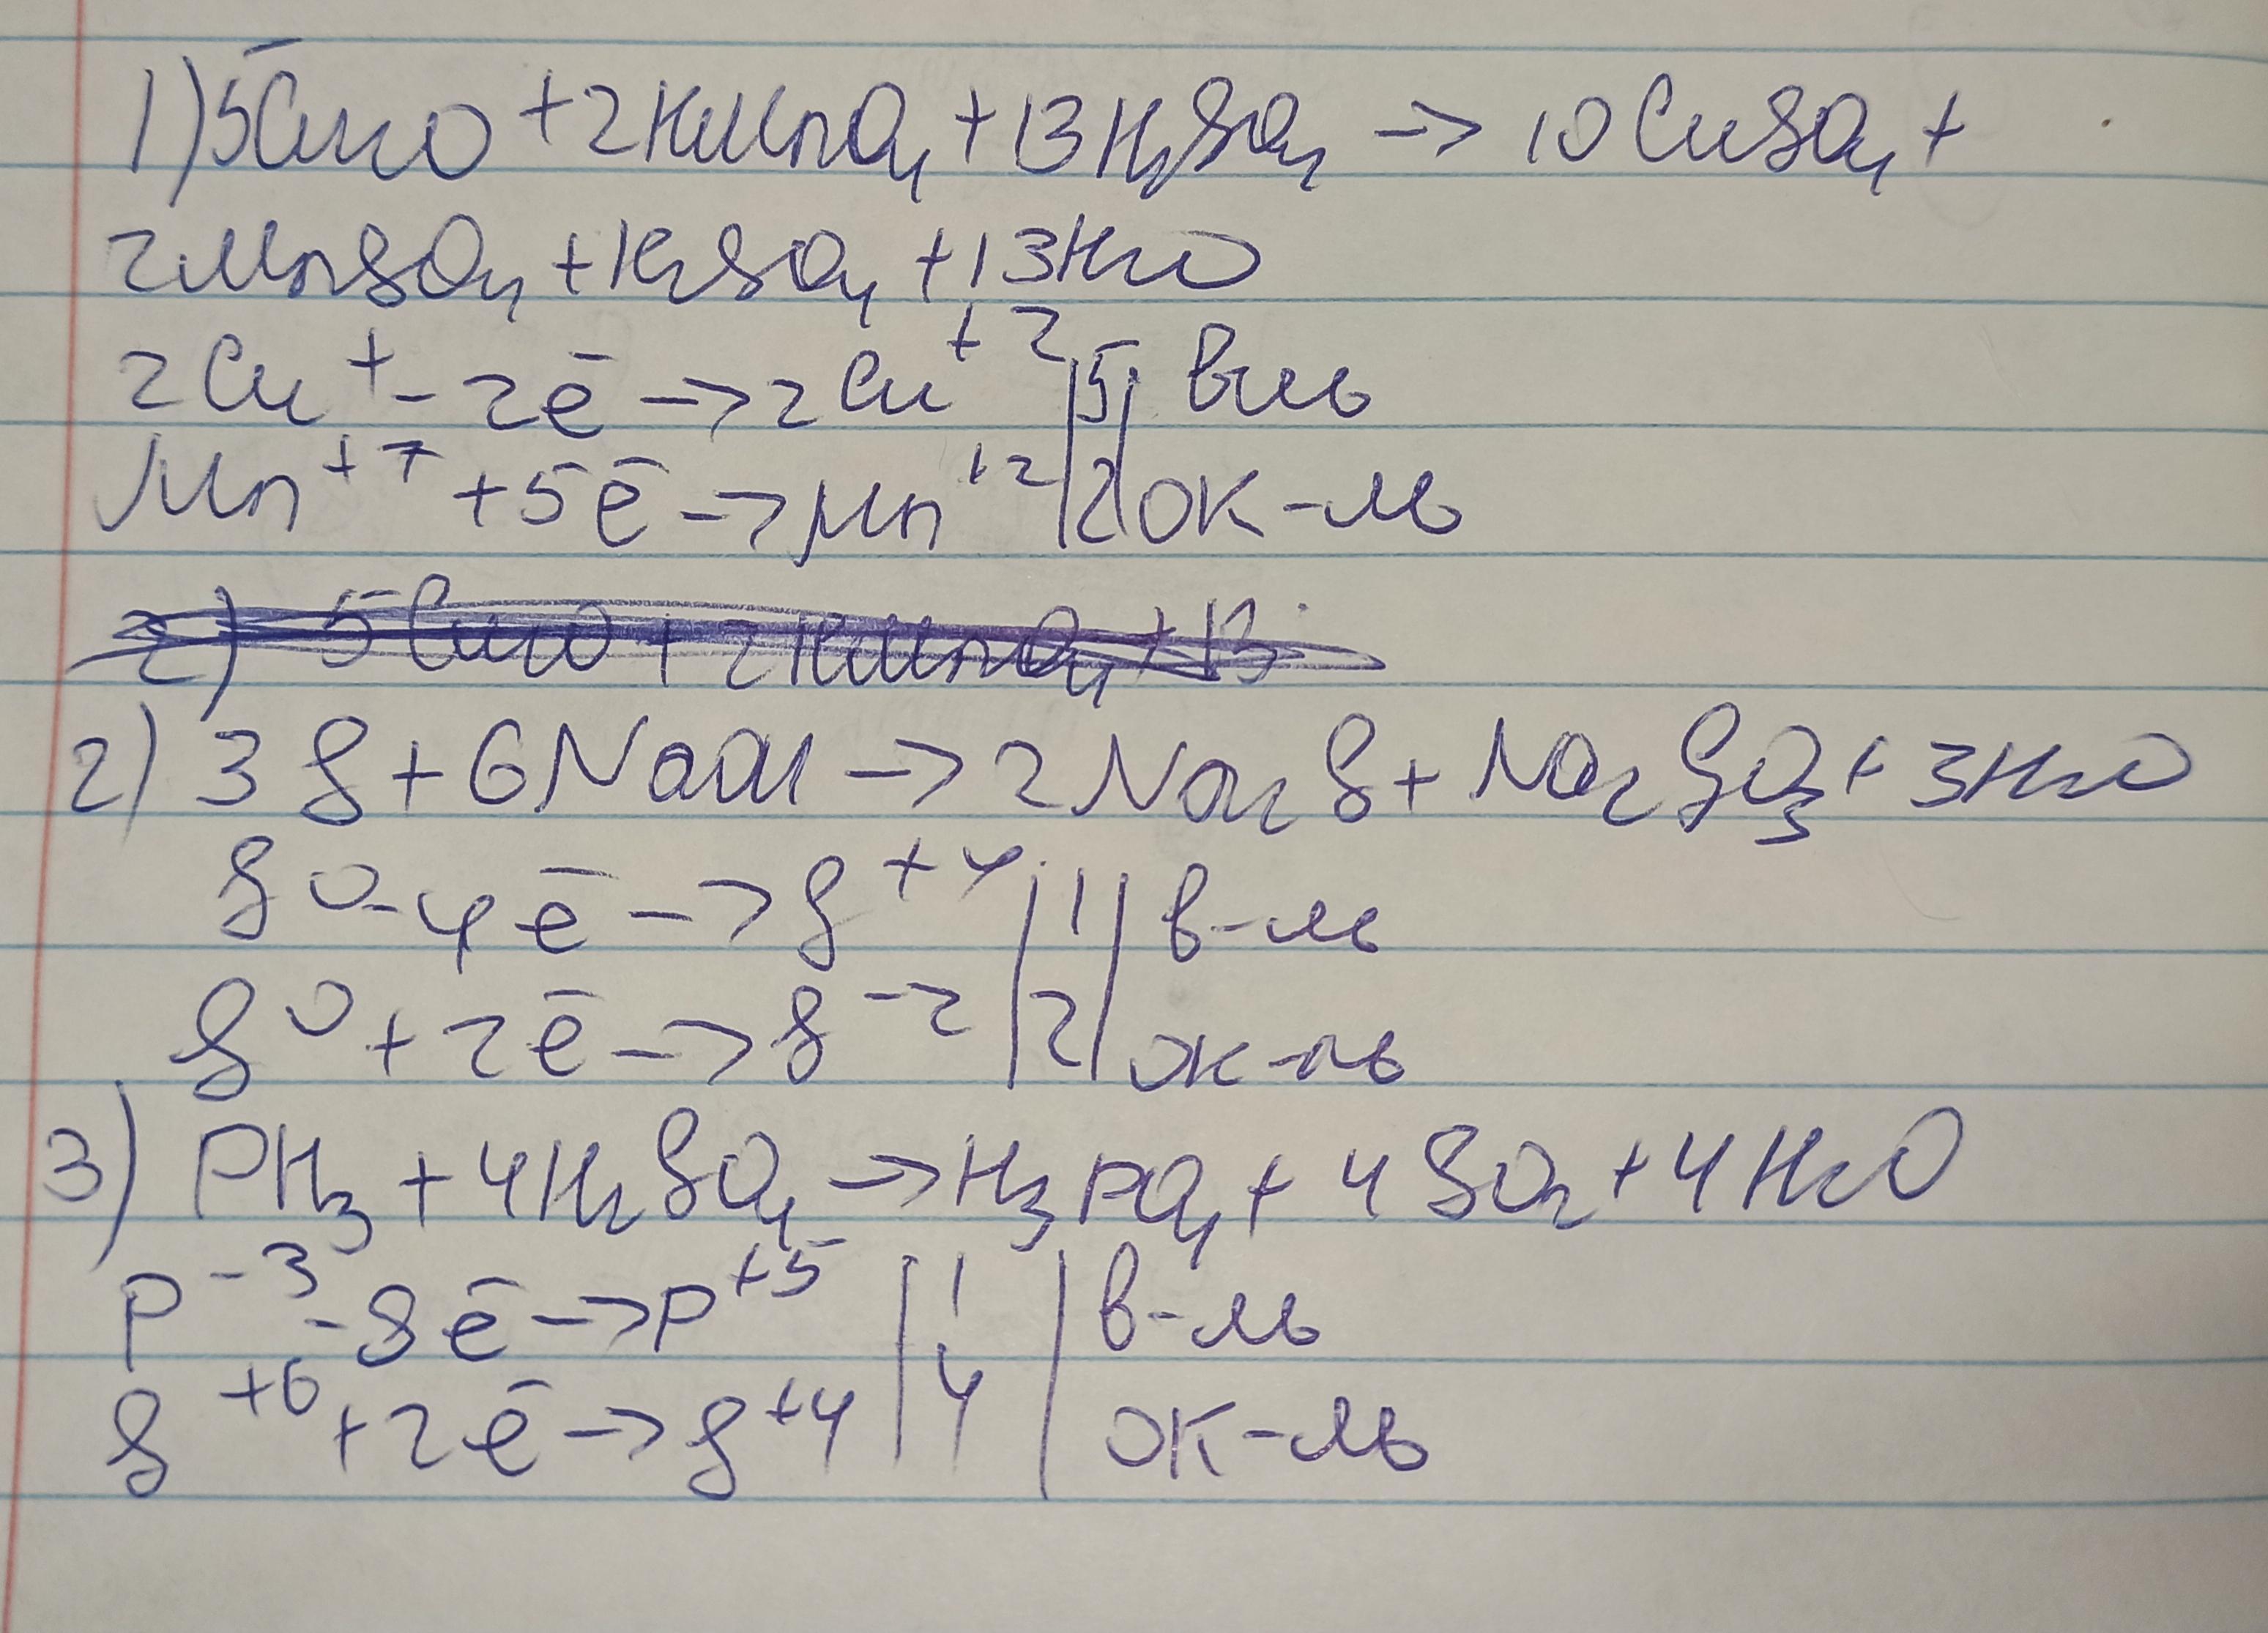 1) 5Cu₂O + 2KMnO₄ + 13H₂SO₄ → 10CuSO₄ +
2MnSO₄ + K₂SO₄ + 13H₂O
2Cu⁺ - 2ē → 2Cu⁺² | 5 | в-ль
Mn⁺⁷ + 5ē → Mn⁺² | 2 | ок-ль
2) 5Cu₂O + 2KMnO₄ + 13
2) 3S + 6NaOH → 2Na₂S + Na₂SO₃ + 3H₂O
S⁰ - 4ē → S⁺⁴ | 1 | в-ль
S⁰ + 2ē → S⁻² | 2 | ок-ль
3) PH₃ + 4H₂SO₄ → H₃PO₄ + 4SO₂ + 4H₂O
P⁻³ - 8ē → P⁺⁵ | 1 | в-ль
S⁺⁶ + 2ē → S⁺⁴ | 4 | ок-ль